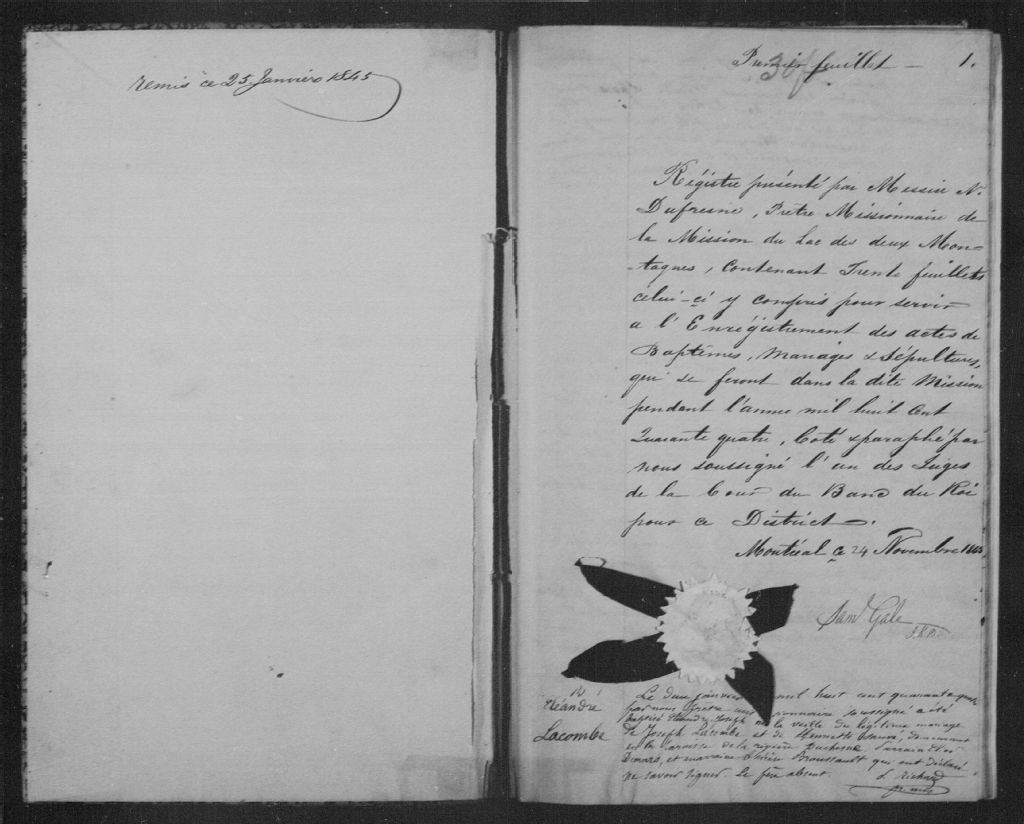 remis ce 25 Janvier 1845
Premier feuillet — 1.
Régistre présenté par Messire N.
Dufresne, Prêtre Missionnaire de
la Mission du Lac des deux Mon=
-tagnes, Contenant Trente feuillets
celui-ci y compris pour servir
a l'Enrégistrement des actes de
Baptêmes, Mariages & Sépultures,
qui se feront dans la dite Mission
pendant l'année mil huit Cent
Quarante quatre, Coté & paraphé par
nous soussigné l'un des Juges
de la Cour du Banc du Roi
pour ce District.
Montréal ce 24 Novembre 1843
Saml Gale
J.K.B.
Léandre
Lacombe
Le deux janvier mil huit cent quarante quatre
par nous prêtre missionnaire soussigné a été
baptisé Léandre Joseph né la veille du légitime mariage
de Joseph Lacombe et de Henriette demeurant
en la de la rivière Duchesne Parrain
et marraine Broussault qui ont déclaré
ne savoir signer le père absent. Richard